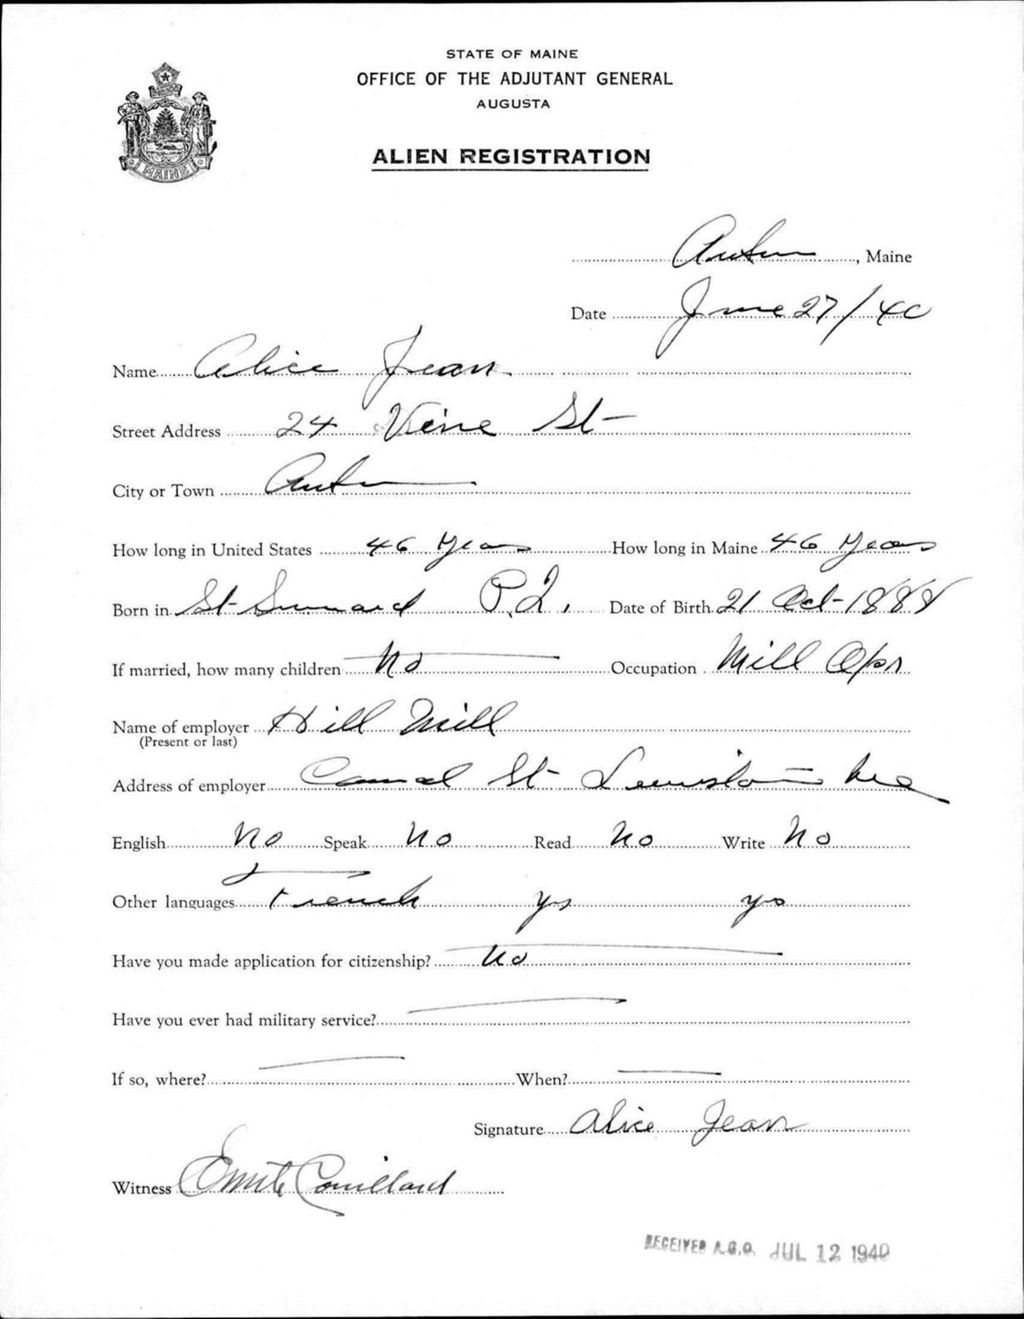 STATE OF MAINE
OFFICE OF THE ADJUTANT GENERAL
AUGUSTA
ALIEN REGISTRATION
MAINE
, Maine
Date June 27/40
Name Alice Jean
Street Address 24 Vine St
City or Town
How long in United States 46 Years How long in Maine 46 Years
Born in St P.Q. Date of Birth 21 Oct - 1888
If married, how many children No Occupation Mill Opr
Name of employer Hill Mill
(Present or last)
Address of employer Canal St Lewiston Me
English No Speak No Read No Write No
Other languages French yes yes
Have you made application for citizenship? No
Have you ever had military service?
If so, where? When?
Signature Alice Jean
Witness Emile Couillard
RECEIVED A.G.O. JUL 12 1940